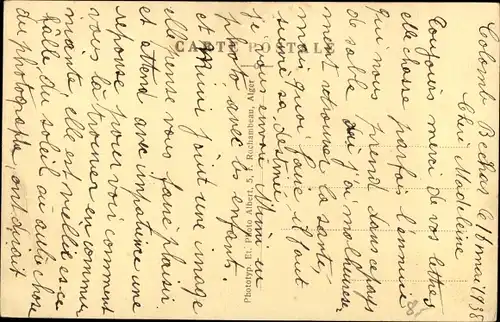 Colomb Bechar, le 18 mai 1938
Chère Madeleine
Toujours merci de vos lettres
elle chasse parfois l'ennuie
qui nous prend dans ce pays
de sable où j'ai malheureu-
ment retrouvée la santé,
mais quoi faire il faut
suivre sa destinée.
je vous envoie Mimi en
photo avec les enfants.
et Mimi joint une image
elle pense vous faire plaisir
et attend avec impatience une
reponse pour voir comment
vous la trouver en communi
miante, elle est vieillie est-ce
hâlle du soleil ou autre chose
du photographe, on dirait
CARTE POSTALE
Phototyp. Et. Photo Albert, 5, r. Rochambeau, Alger